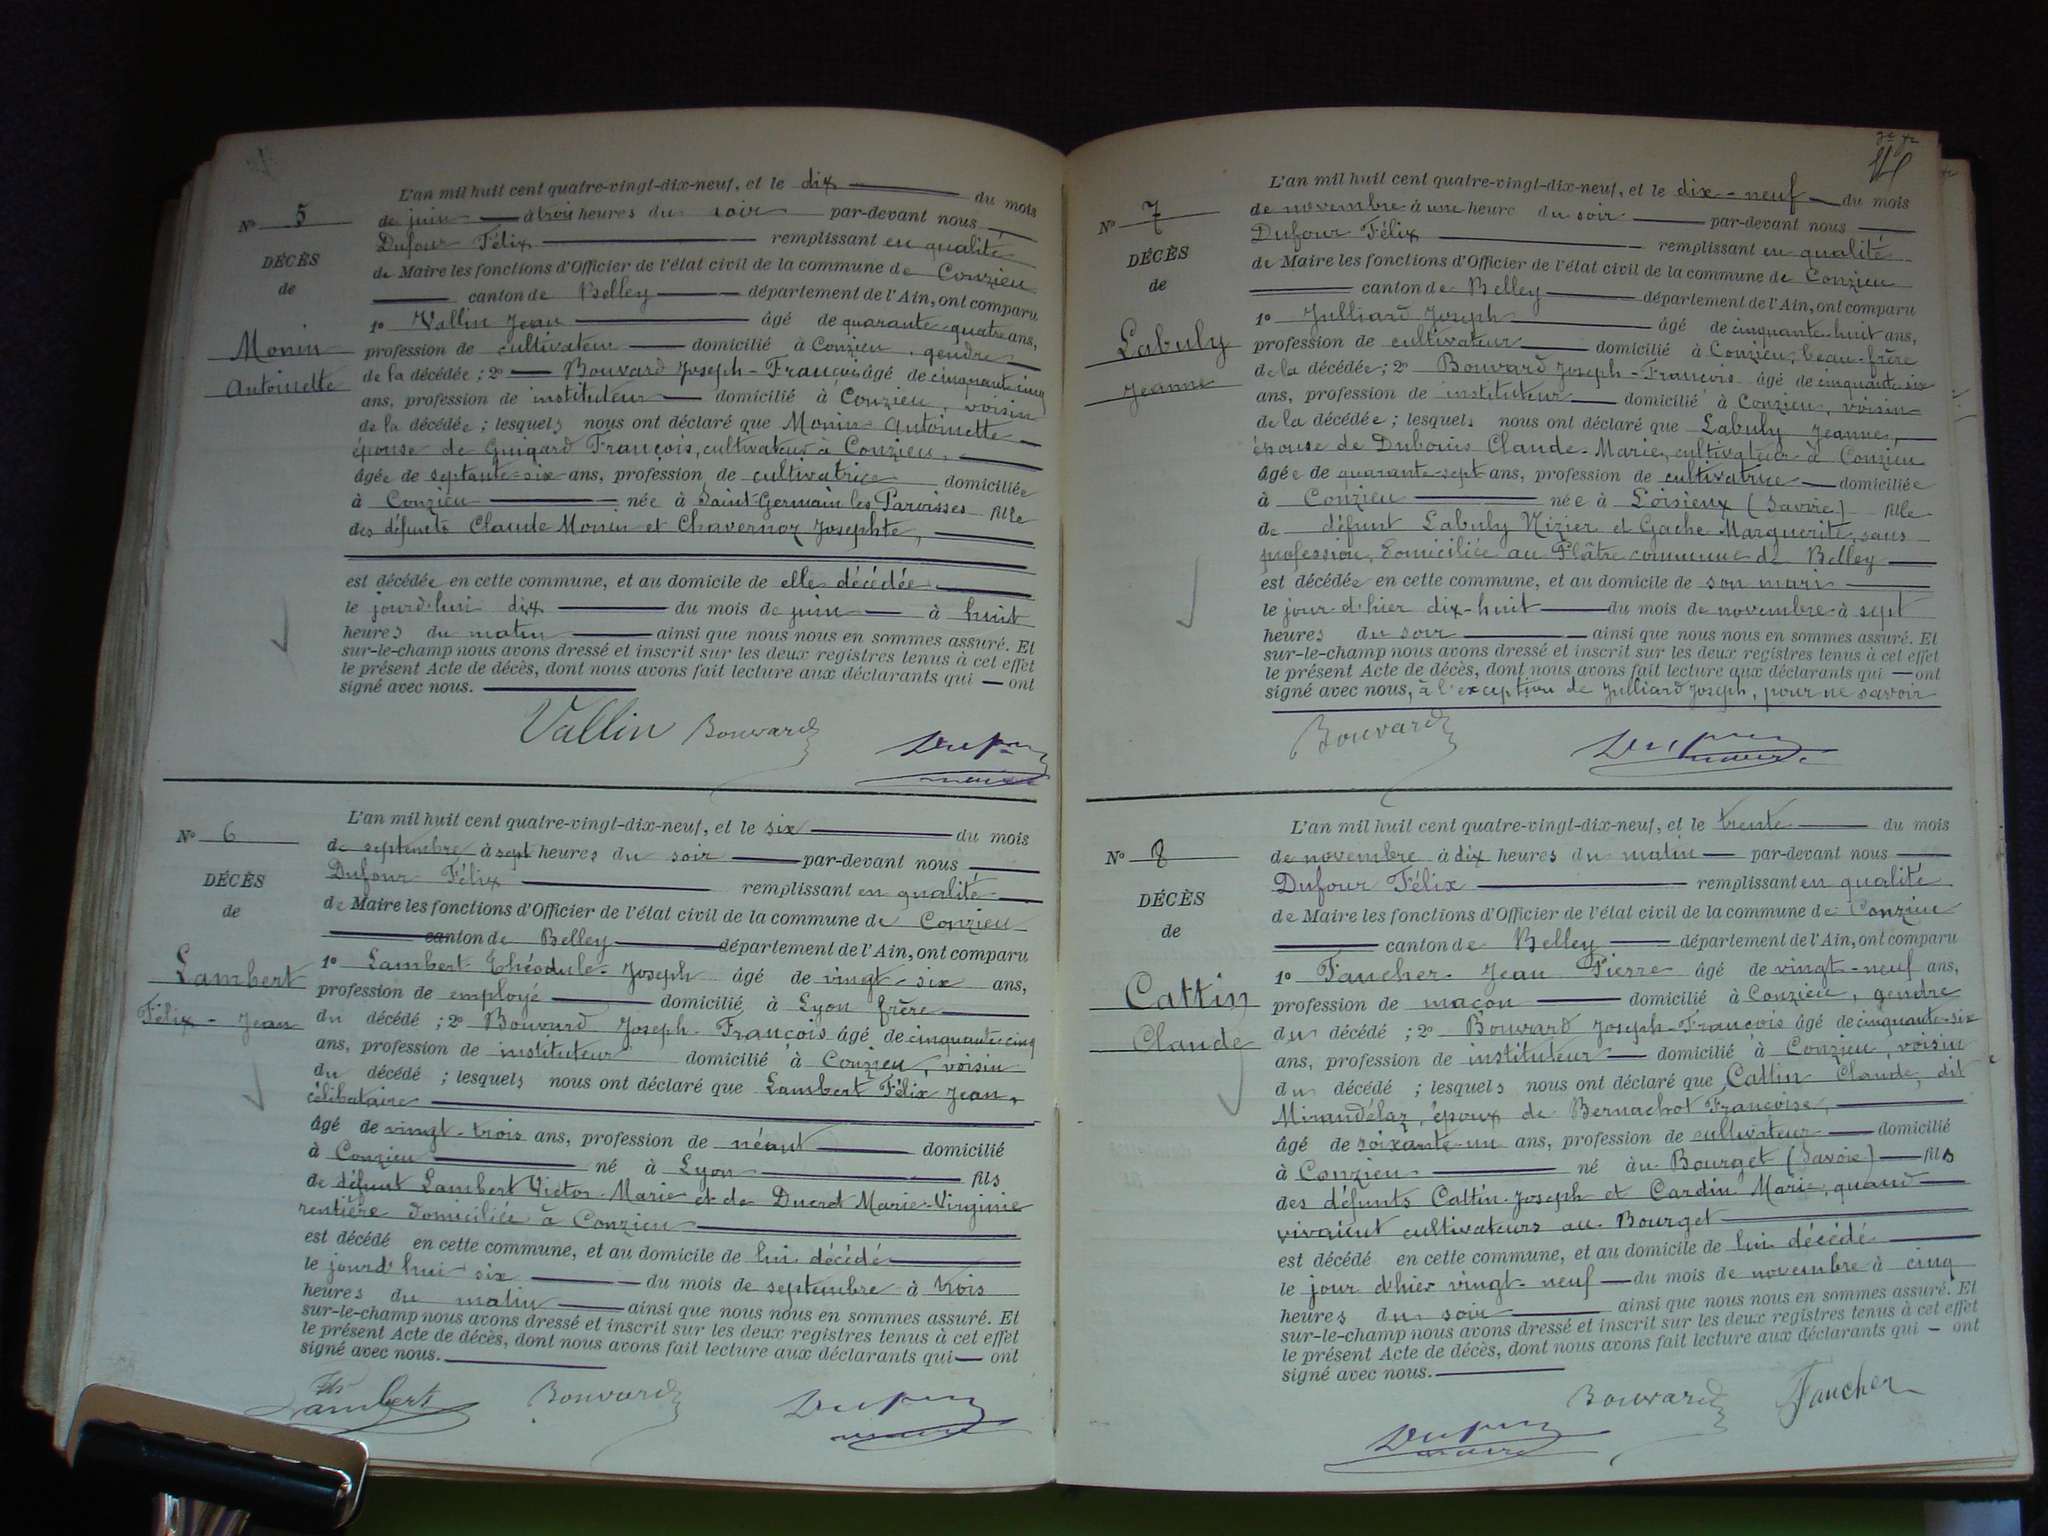 L'an mil huit cent quatre-vingt-dix-neuf, et le dix du mois
N° 5
de juin à trois heures du soir par-devant nous
Dufour Félix remplissant en qualité
DÉCÈS
de
de Maire les fonctions d'Officier de l'état civil de la commune de Conzieu
canton de Belley département de l'Ain, ont comparu
1° Vallin Jean âgé de quarante-quatre ans,
Monin
Antoinette
profession de cultivateur domicilié à Conzieu, gendre
de la décédée ; 2° Bouvard Joseph-François âgé de cinquante cinq
ans, profession de instituteur domicilié à Conzieu, voisin
de la décédée ; lesquels nous ont déclaré que Monin Antoinette
épouse de Guigard François, cultivateur à Conzieu,
âgée de septante-six ans, profession de cultivatrice domiciliée
à Conzieu née à Saint-Germain les Paroisses fille
des défunts Claude Monin et Chavernoz Josephte,
est décédée en cette commune, et au domicile de elle décédée
le jourd'hui dix du mois de juin à huit
heures du matin ainsi que nous nous en sommes assuré. Et
sur-le-champ nous avons dressé et inscrit sur les deux registres tenus à cet effet
le présent Acte de décès, dont nous avons fait lecture aux déclarants qui ont
signé avec nous.
Vallin Bouvard
maire
L'an mil huit cent quatre-vingt-dix-neuf, et le six du mois
N° 6
de septembre à sept heures du soir par-devant nous
Dufour Félix remplissant en qualité
DÉCÈS
de
de Maire les fonctions d'Officier de l'état civil de la commune de Conzieu
canton de Belley département de l'Ain, ont comparu
Lambert
Félix-Jean
1° Lambert Théodule-Joseph âgé de vingt-six ans,
profession de employé domicilié à Lyon frère
du décédé ; 2° Bouvard Joseph-François âgé de cinquante cinq
ans, profession de instituteur domicilié à Conzieu, voisin
du décédé ; lesquels nous ont déclaré que Lambert Félix Jean,
célibataire
âgé de vingt-trois ans, profession de néant domicilié
à Conzieu né à Lyon fils
de défunt Lambert Victor-Marie et de Ducrot Marie-Virginie
rentière domiciliée à Conzieu
est décédé en cette commune, et au domicile de lui décédé
le jourd'hui six du mois de septembre à trois
heures du matin ainsi que nous nous en sommes assuré. Et
sur-le-champ nous avons dressé et inscrit sur les deux registres tenus à cet effet
le présent Acte de décès, dont nous avons fait lecture aux déclarants qui ont
signé avec nous.
Lambert Bouvard
maire
L'an mil huit cent quatre-vingt-dix-neuf, et le dix-neuf du mois
N° 7
de novembre à une heure du soir par-devant nous
Dufour Félix remplissant en qualité
DÉCÈS
de
de Maire les fonctions d'Officier de l'état civil de la commune de Conzieu
canton de Belley département de l'Ain, ont comparu
Labuly
Jeanne
1° Julliard Joseph âgé de cinquante-huit ans,
profession de cultivateur domicilié à Conzieu, beau-frère
de la décédée ; 2° Bouvard Joseph-François âgé de cinquante-six
ans, profession de instituteur domicilié à Conzieu, voisin
de la décédée ; lesquels nous ont déclaré que Labuly Jeanne,
épouse de Dubouis Claude-Marie, cultivateur à Conzieu
âgée de quarante-sept ans, profession de cultivatrice domiciliée
à Conzieu née à Loisieux (Savoie) fille
de défunt Labuly Nizier et Gache Marguerite, sans
profession, domiciliée au Plâtre commune de Belley
est décédée en cette commune, et au domicile de son mari
le jour d'hier dix-huit du mois de novembre à sept
heures du soir ainsi que nous nous en sommes assuré. Et
sur-le-champ nous avons dressé et inscrit sur les deux registres tenus à cet effet
le présent Acte de décès, dont nous avons fait lecture aux déclarants qui ont
signé avec nous, à l'exception de Julliard Joseph, pour ne savoir
Bouvard
maire
L'an mil huit cent quatre-vingt-dix-neuf, et le trente du mois
N° 8
de novembre à dix heures du matin par-devant nous
Dufour Félix remplissant en qualité
DÉCÈS
de
de Maire les fonctions d'Officier de l'état civil de la commune de Conzieu
canton de Belley département de l'Ain, ont comparu
Cattin
Claude
1° Faucher Jean Pierre âgé de vingt-neuf ans,
profession de maçon domicilié à Conzieu, gendre
du décédé ; 2° Bouvard Joseph-François âgé de cinquante-six
ans, profession de instituteur domicilié à Conzieu, voisin
du décédé ; lesquels nous ont déclaré que Cattin Claude, dit
Mirandélaz, époux de Bernachot Françoise,
âgé de soixante-un ans, profession de cultivateur domicilié
à Conzieu né au Bourget (Savoie) fils
des défunts Cattin Joseph et Cardin Marie, quand
vivaient cultivateurs au Bourget
est décédé en cette commune, et au domicile de lui décédé
le jour d'hier vingt-neuf du mois de novembre à cinq
heures du soir ainsi que nous nous en sommes assuré. Et
sur-le-champ nous avons dressé et inscrit sur les deux registres tenus à cet effet
le présent Acte de décès, dont nous avons fait lecture aux déclarants qui ont
signé avec nous.
Bouvard Faucher
maire